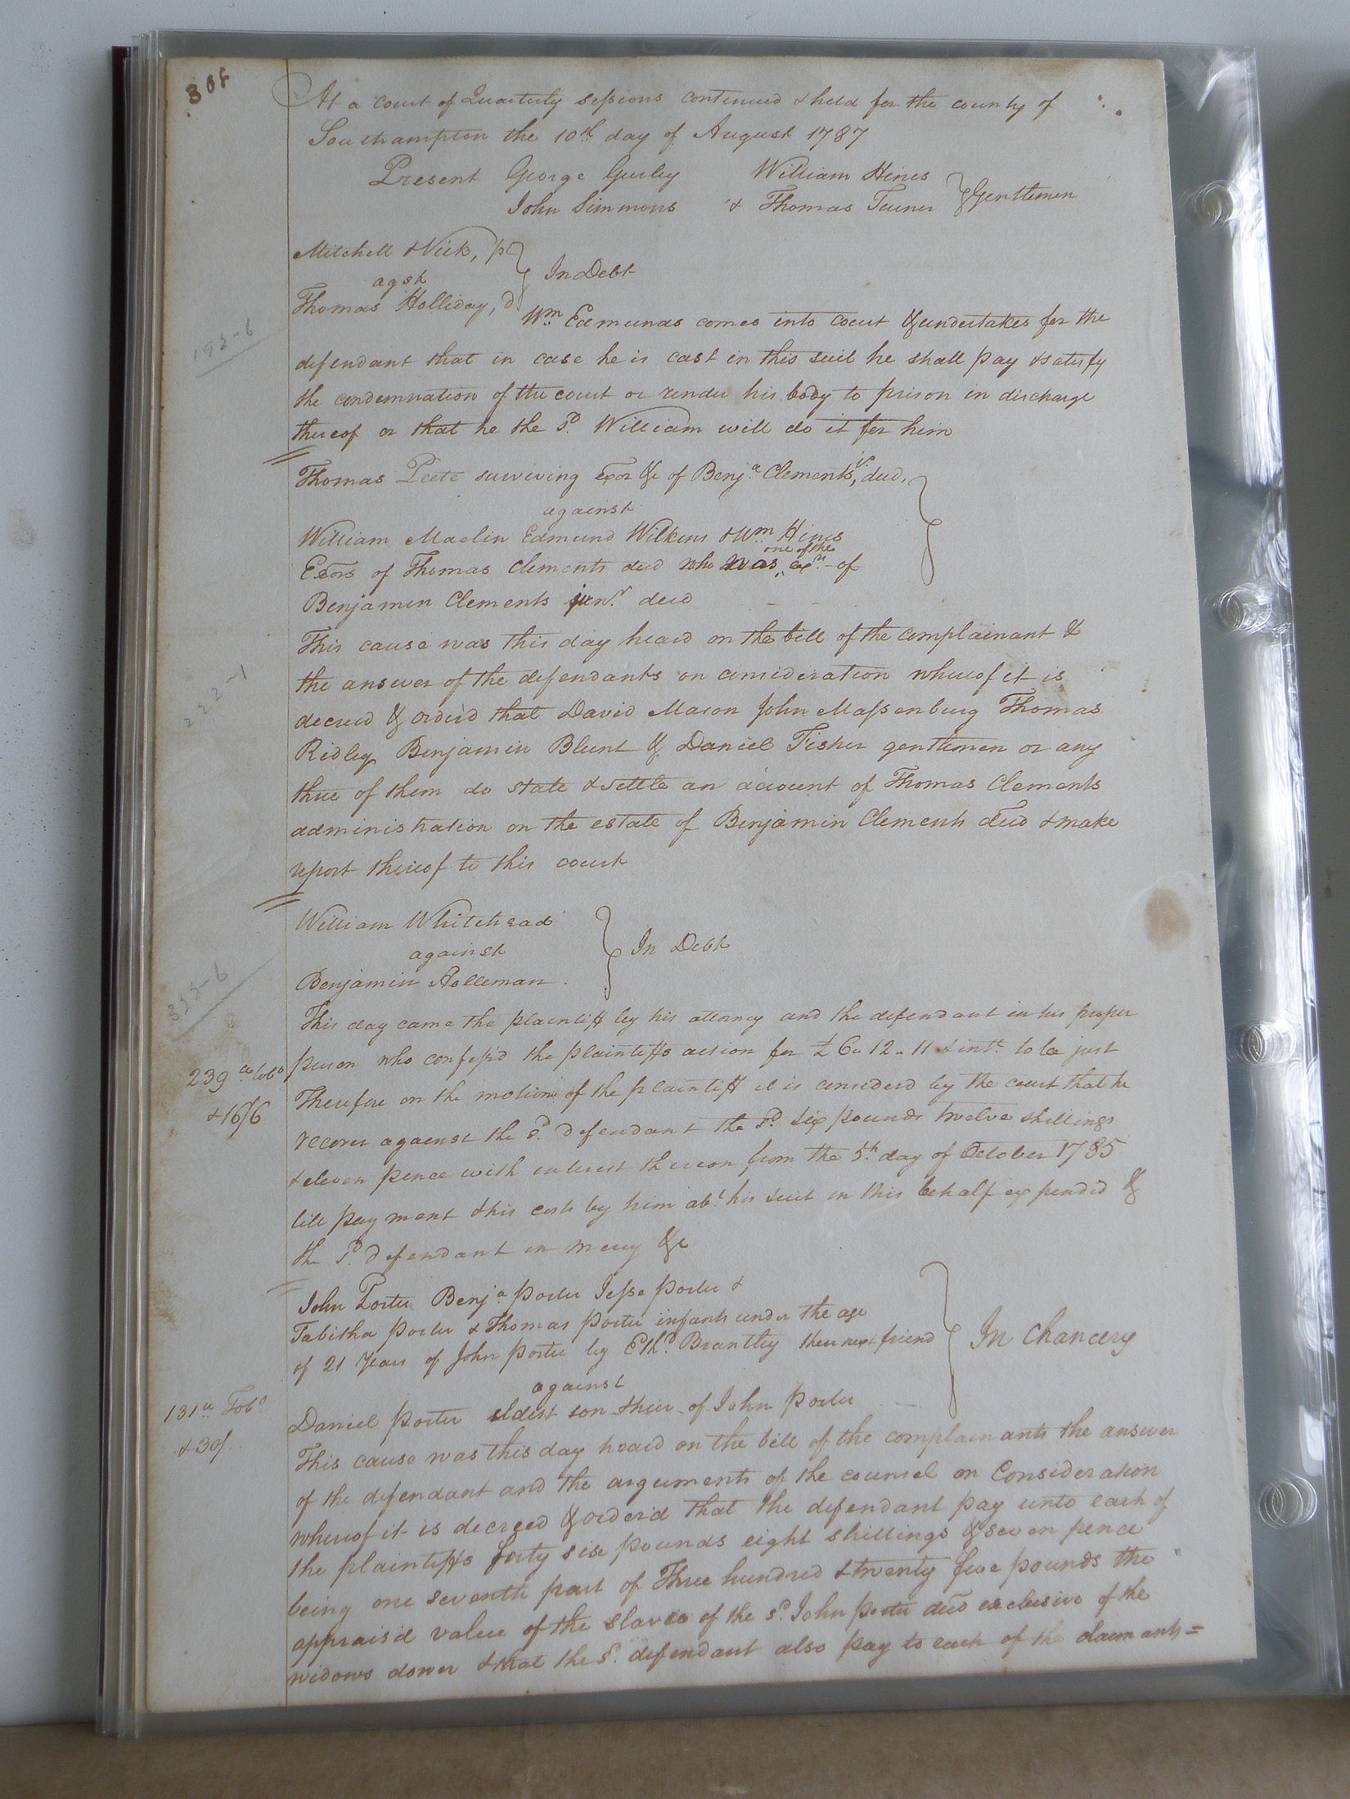 At a court of Quarterly sessions continued & held for the county of
Southampton the 10th day of August 1787
Present George Gurley William Hines
John Simmons & Thomas Turner Gentlemen
Mitchell & Nick, p
agst
Thomas Holliday, d
In Debt
Wm Edmunds comes into court & undertakes for the
defendant that in case he is cast in this suit he shall pay & satisfy
the condemnation of the court or render his body to prison in discharge
thereof or that he the sd. William will do it for him
192-6
Thomas Peete surviving Exor &c of Benja Clements, decd.
against
William Maclin Edmund Wilkins & Wm Hines
Exors of Thomas Clements decd who was one of the exrs. of
Benjamin Clements junr. decd
This cause was this day heard on the bill of the complainant &
the answer of the defendants on consideration whereof it is
decreed & orderd that David Mason John Massenburg Thomas
Ridley Benjamin Blunt & Daniel Fisher gentlemen or any
three of them do state & settle an account of Thomas Clements
administration on the estate of Benjamin Clements decd & make
report thereof to this court
222-1
William Whitehead
against
Benjamin Holleman
In Debt
This day came the plaintiff by his attorney and the defendant in his proper
person who confess'd the plaintiffs action for £ 6.. 12.. 11 & intt. to be just
Therefore on the motion of the plaintiff it is considered by the court that he
recover against the sd. defendant the sd. six pounds twelve shillings
& eleven pence with interest thereon from the 5th. day of October 1785
till payment & his costs by him abt. his suit in this behalf expended &
the sd. defendant in mercy &c
239 tobo
& 16/6
John Porter Benja Porter Jesse Porter &
Tabitha Porter & Thomas Porter infants under the age
of 21 Years of John Porter by Ethd. Brantley their next friend
against
Daniel Porter eldest son & heir of John Porter
In Chancery
This cause was this day heard on the bill of the complainants the answer
of the defendant and the arguments of the counsel on Consideration
whereof it is decreed & order'd that the defendant pay unto each of
the plaintiffs forty six pounds eight shillings & seven pence
being one seventh part of Three hundred & twenty five pounds the
apprais'd value of the slaves of the sd. John Porter decd exclusive of the
widows dower & that the sd. defendant also pay to each of the claimants=
131 Tobo
& 30/.